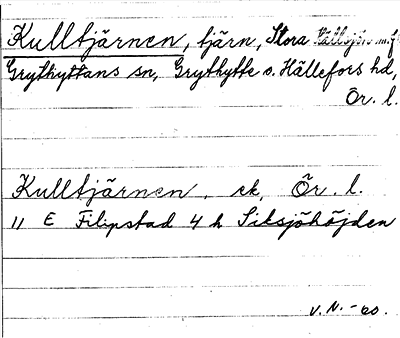 Kulltjärnen, tjärn, Stora Hällsjön m.fl
Grythyttans sn, Grythytte o. Hällefors hd,
Ör. l.
Kulltjärnen, ek, Ör. l.
11 E Filipstad 4 h Siksjöhöjden
V.N. -60.